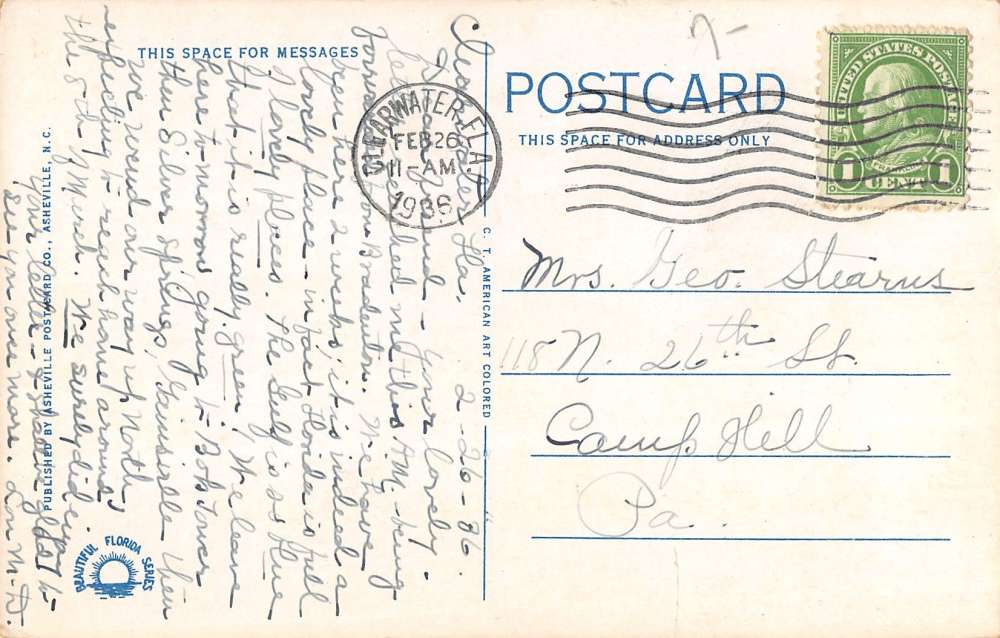 THIS SPACE FOR MESSAGES
POSTCARD
THIS SPACE FOR ADDRESS ONLY
UNITED STATES POSTAGE
FRANKLIN
1 CENT 1
CLEARWATER, FLA.
FEB 26
11-AM
1936
7-
Clearwater, Fla. 2-26-36.
Dear Friend - Your lovely
letter reached me this A.M. - being
forwarded from Bradenton. We have
been here 2 weeks; it is indeed a
lovely place - in fact Florida is full
of lovely places. The Gulf is so blue
that it is really green! We leave
here to-morrow going to Bok Tower
then Silver Springs, Gainesville then
we wend our way up North
expecting to reach home around
the 8th of March. We surely did enjoy
your letter - & shall be glad to
see you once more. Lou M-D.
Mrs. Geo. Stearns
118 N. 26th St.
Camp Hill
Pa.
C. T. AMERICAN ART COLORED
PUBLISHED BY ASHEVILLE POSTCARD CO., ASHEVILLE, N.C.
BEAUTIFUL FLORIDA SERIES